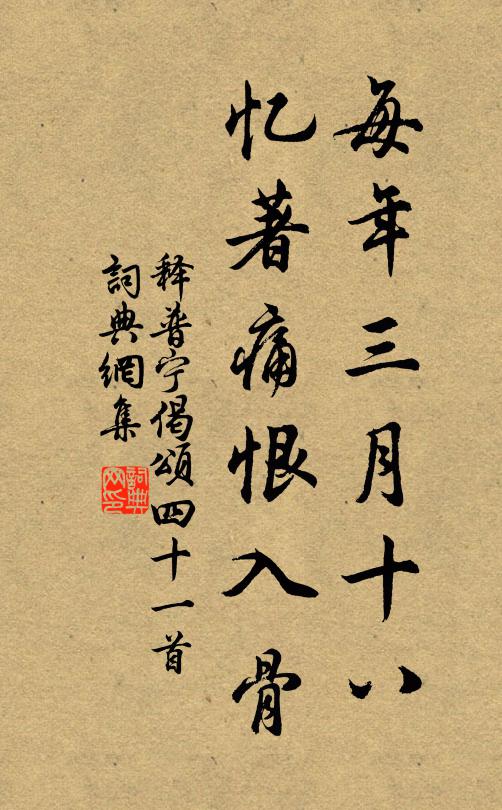 每年三月十八
忆著痛恨入骨
释普宁偈頌四十一首
詞典網集
詞典网印